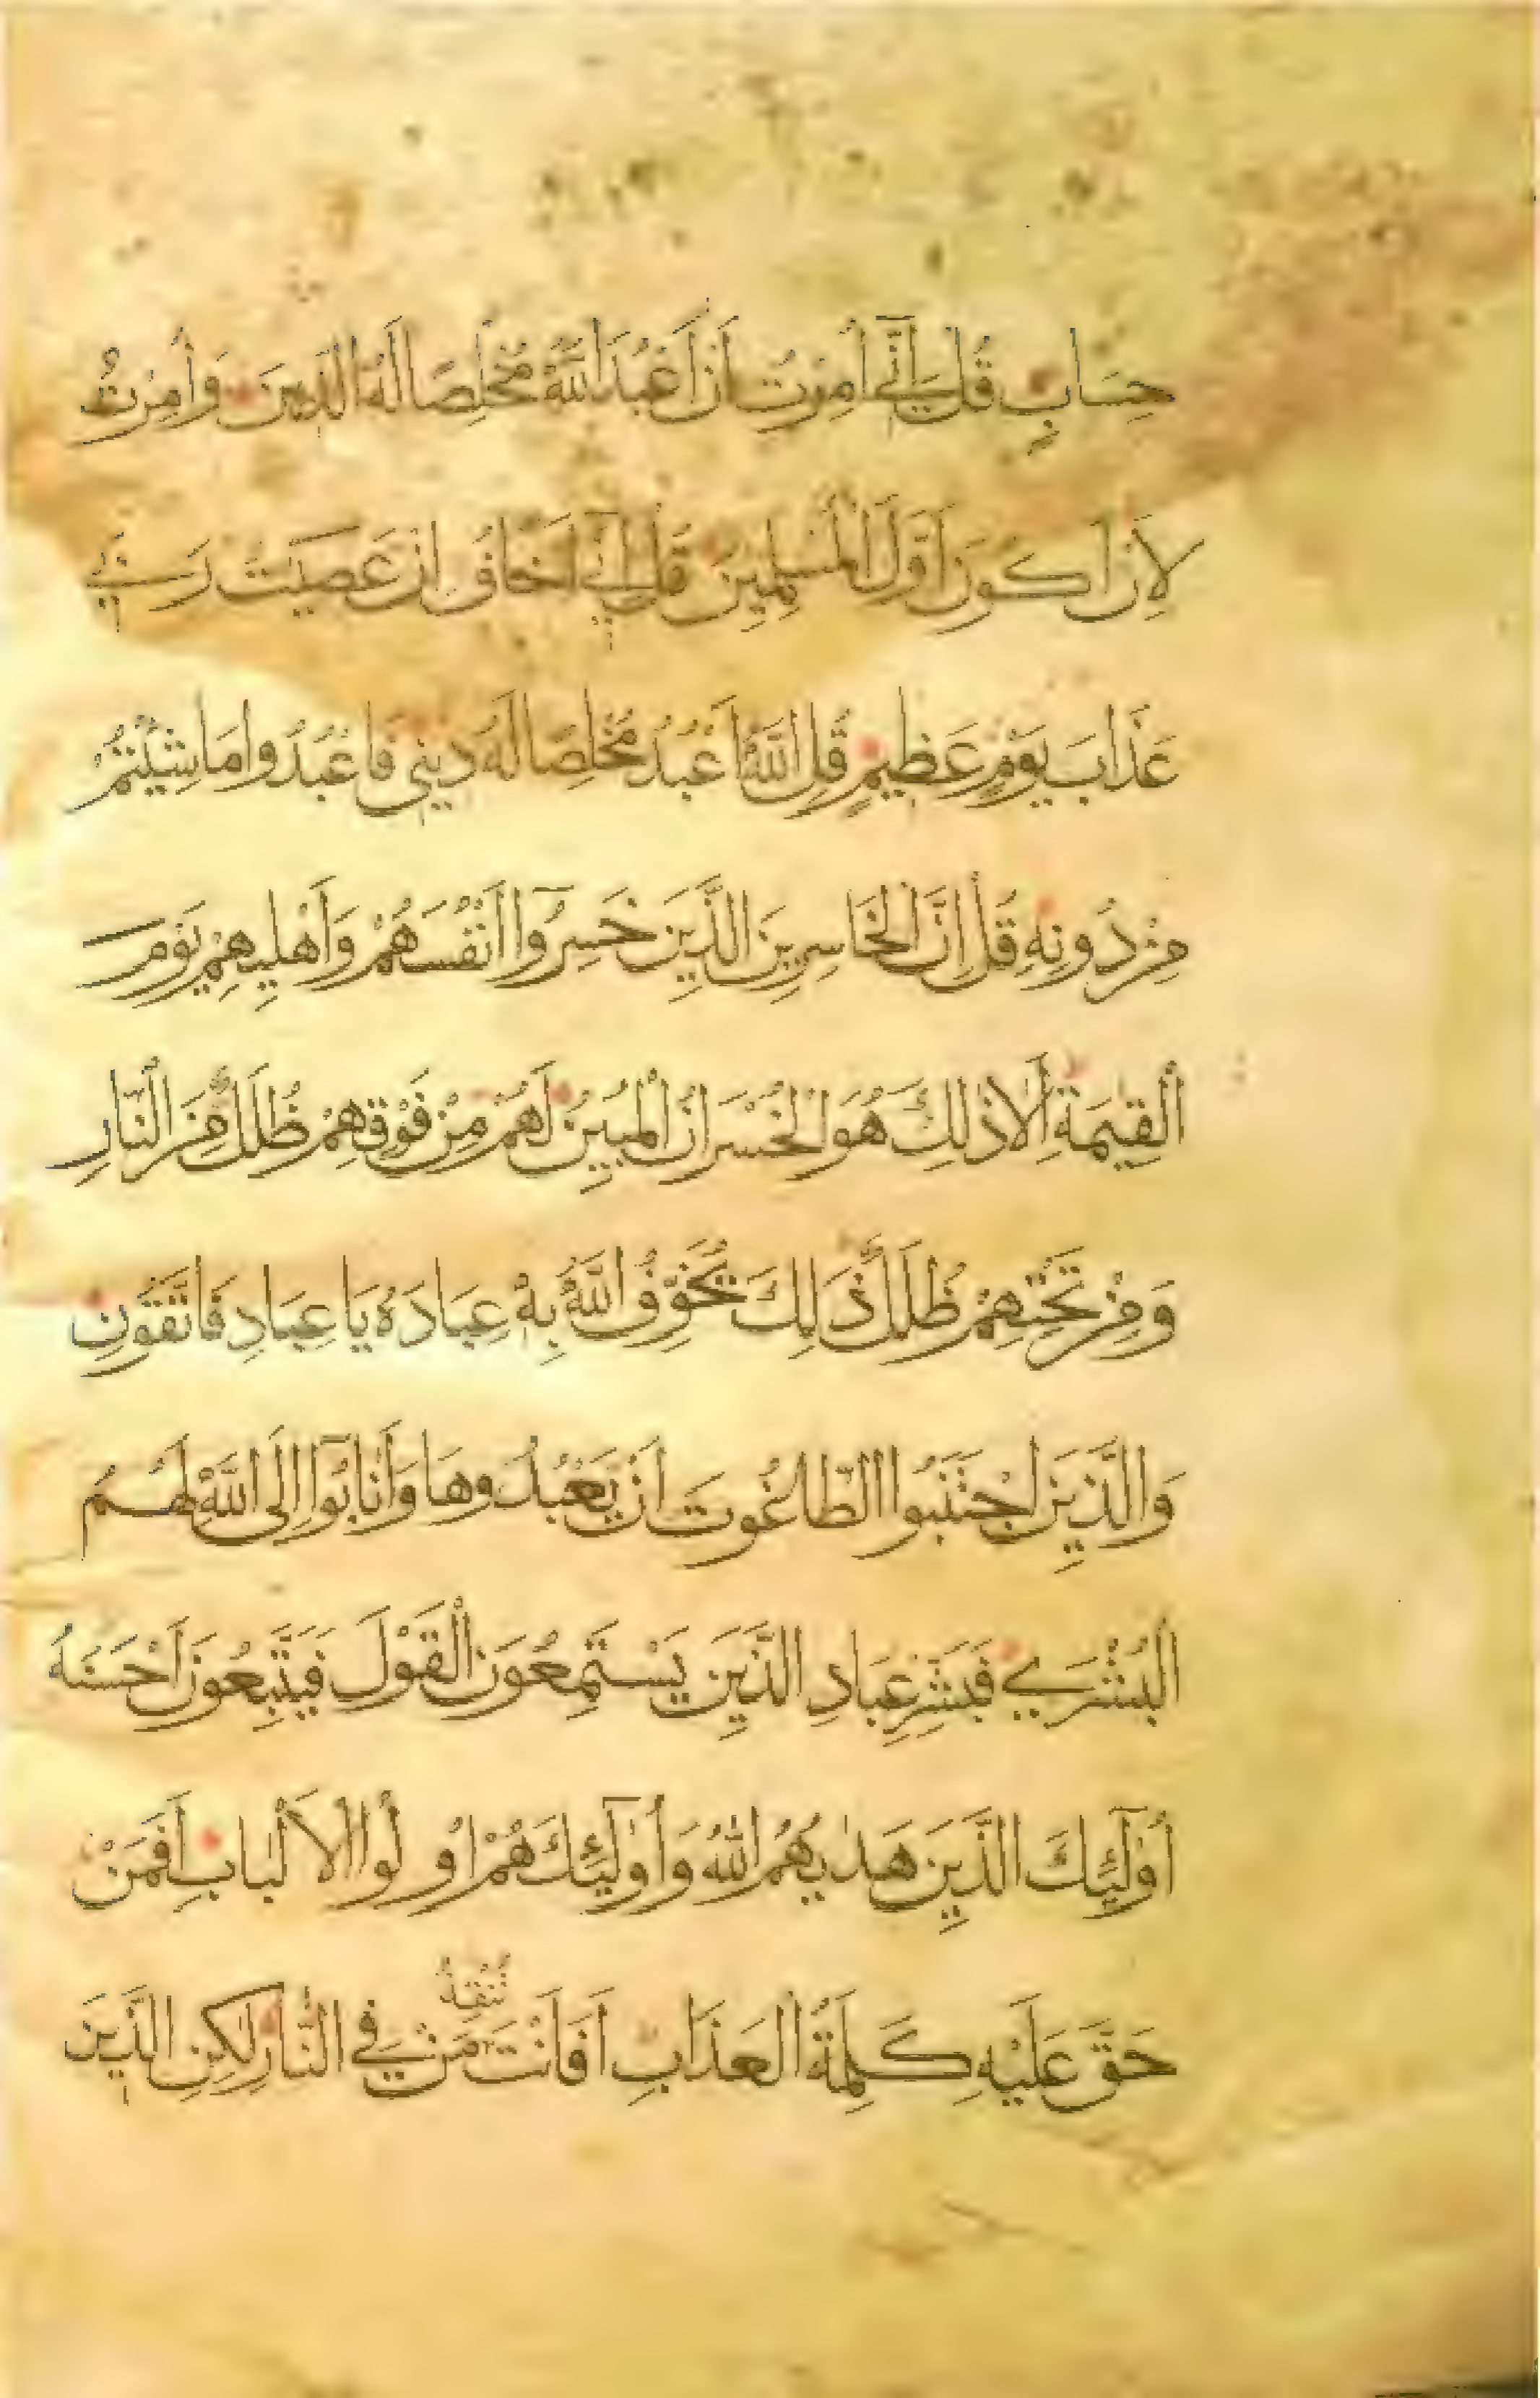 حِسَابٍ قُلْ اِنِّٓي اُمِرْتُ اَنْ اَعْبُدَ اللّٰهَ مُخْلِصًا لَهُ الدّٖينَ وَاُمِرْتُ
لِاَنْ اَكُونَ اَوَّلَ الْمُسْلِمٖينَ قُلْ اِنّٖٓي اَخَافُ اِنْ عَصَيْتُ رَبّٖي
عَذَابَ يَوْمٍ عَظٖيمٍ قُلِ اللّٰهَ اَعْبُدُ مُخْلِصًا لَهُ دٖينٖي فَاعْبُدُوا مَا شِئْتُمْ
مِنْ دُونِهٖ قُلْ اِنَّ الْخَاسِرٖينَ الَّذٖينَ خَسِرُٓوا اَنْفُسَهُمْ وَاَهْلٖيهِمْ يَوْمَ
الْقِيٰمَةِ اَلَا ذٰلِكَ هُوَ الْخُسْرَانُ الْمُبٖينُ لَهُمْ مِنْ فَوْقِهِمْ ظُلَلٌ مِنَ النَّارِ
وَمِنْ تَحْتِهِمْ ظُلَلٌ ذَالِكَ يُخَوِّفُ اللّٰهُ بِهٖ عِبَادَهُ يَا عِبَادِ فَاتَّقُونِ
وَالَّذٖينَ اجْتَنَبُوا الطَّاغُوتَ اَنْ يَعْبُدُوهَا وَاَنَابُٓوا اِلَى اللّٰهِ لَهُمُ
الْبُشْرٰي فَبَشِّرْ عِبَادِ الَّذٖينَ يَسْتَمِعُونَ الْقَوْلَ فَيَتَّبِعُونَ اَحْسَنَهُ
اُوْلٰٓئِكَ الَّذٖينَ هَدٰيهُمُ اللّٰهُ وَاُوْلٰٓئِكَ هُمْ اُولُوا الْاَلْبَابِ اَفَمَنْ
حَقَّ عَلَيْهِ كَلِمَةُ الْعَذَابِ اَفَاَنْتَ تُنْقِذُ مَنْ فِي النَّارِ لٰكِنِ الَّذٖينَ